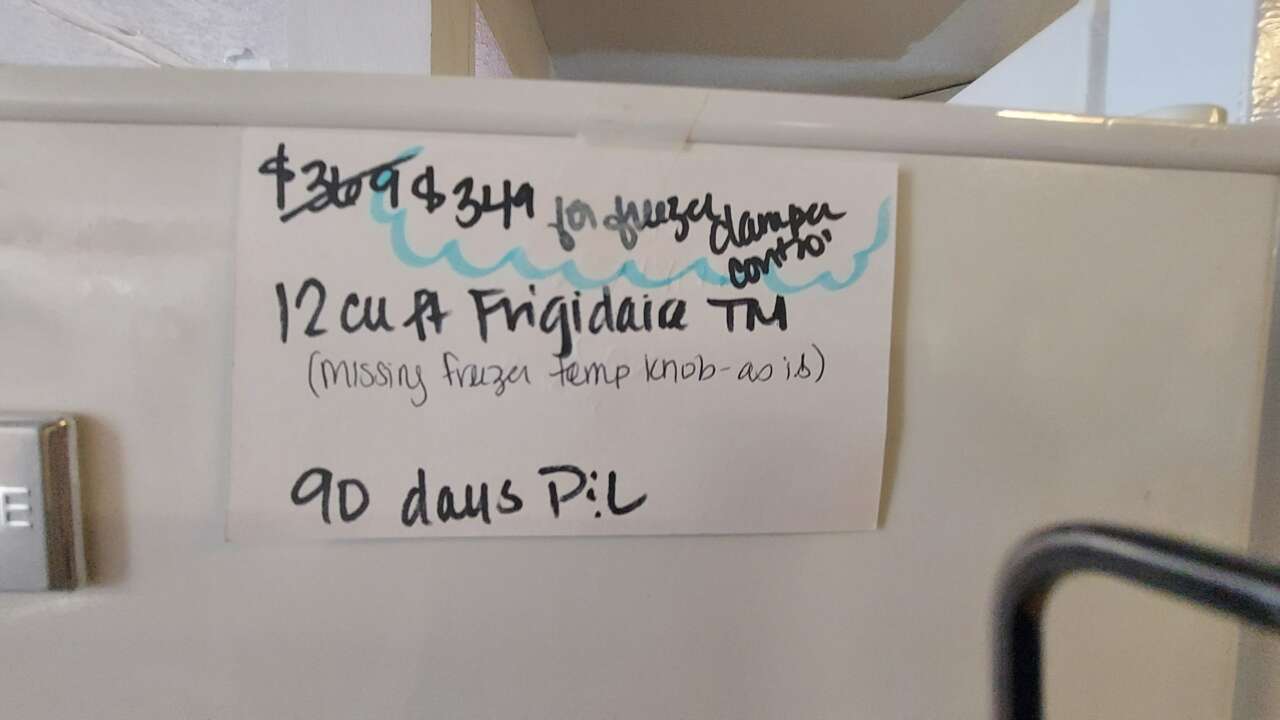 $369 $349 for freezer damper control
12 cu ft Frigidaire TM
(missing freezer temp knob-as is)
90 days P:L
E